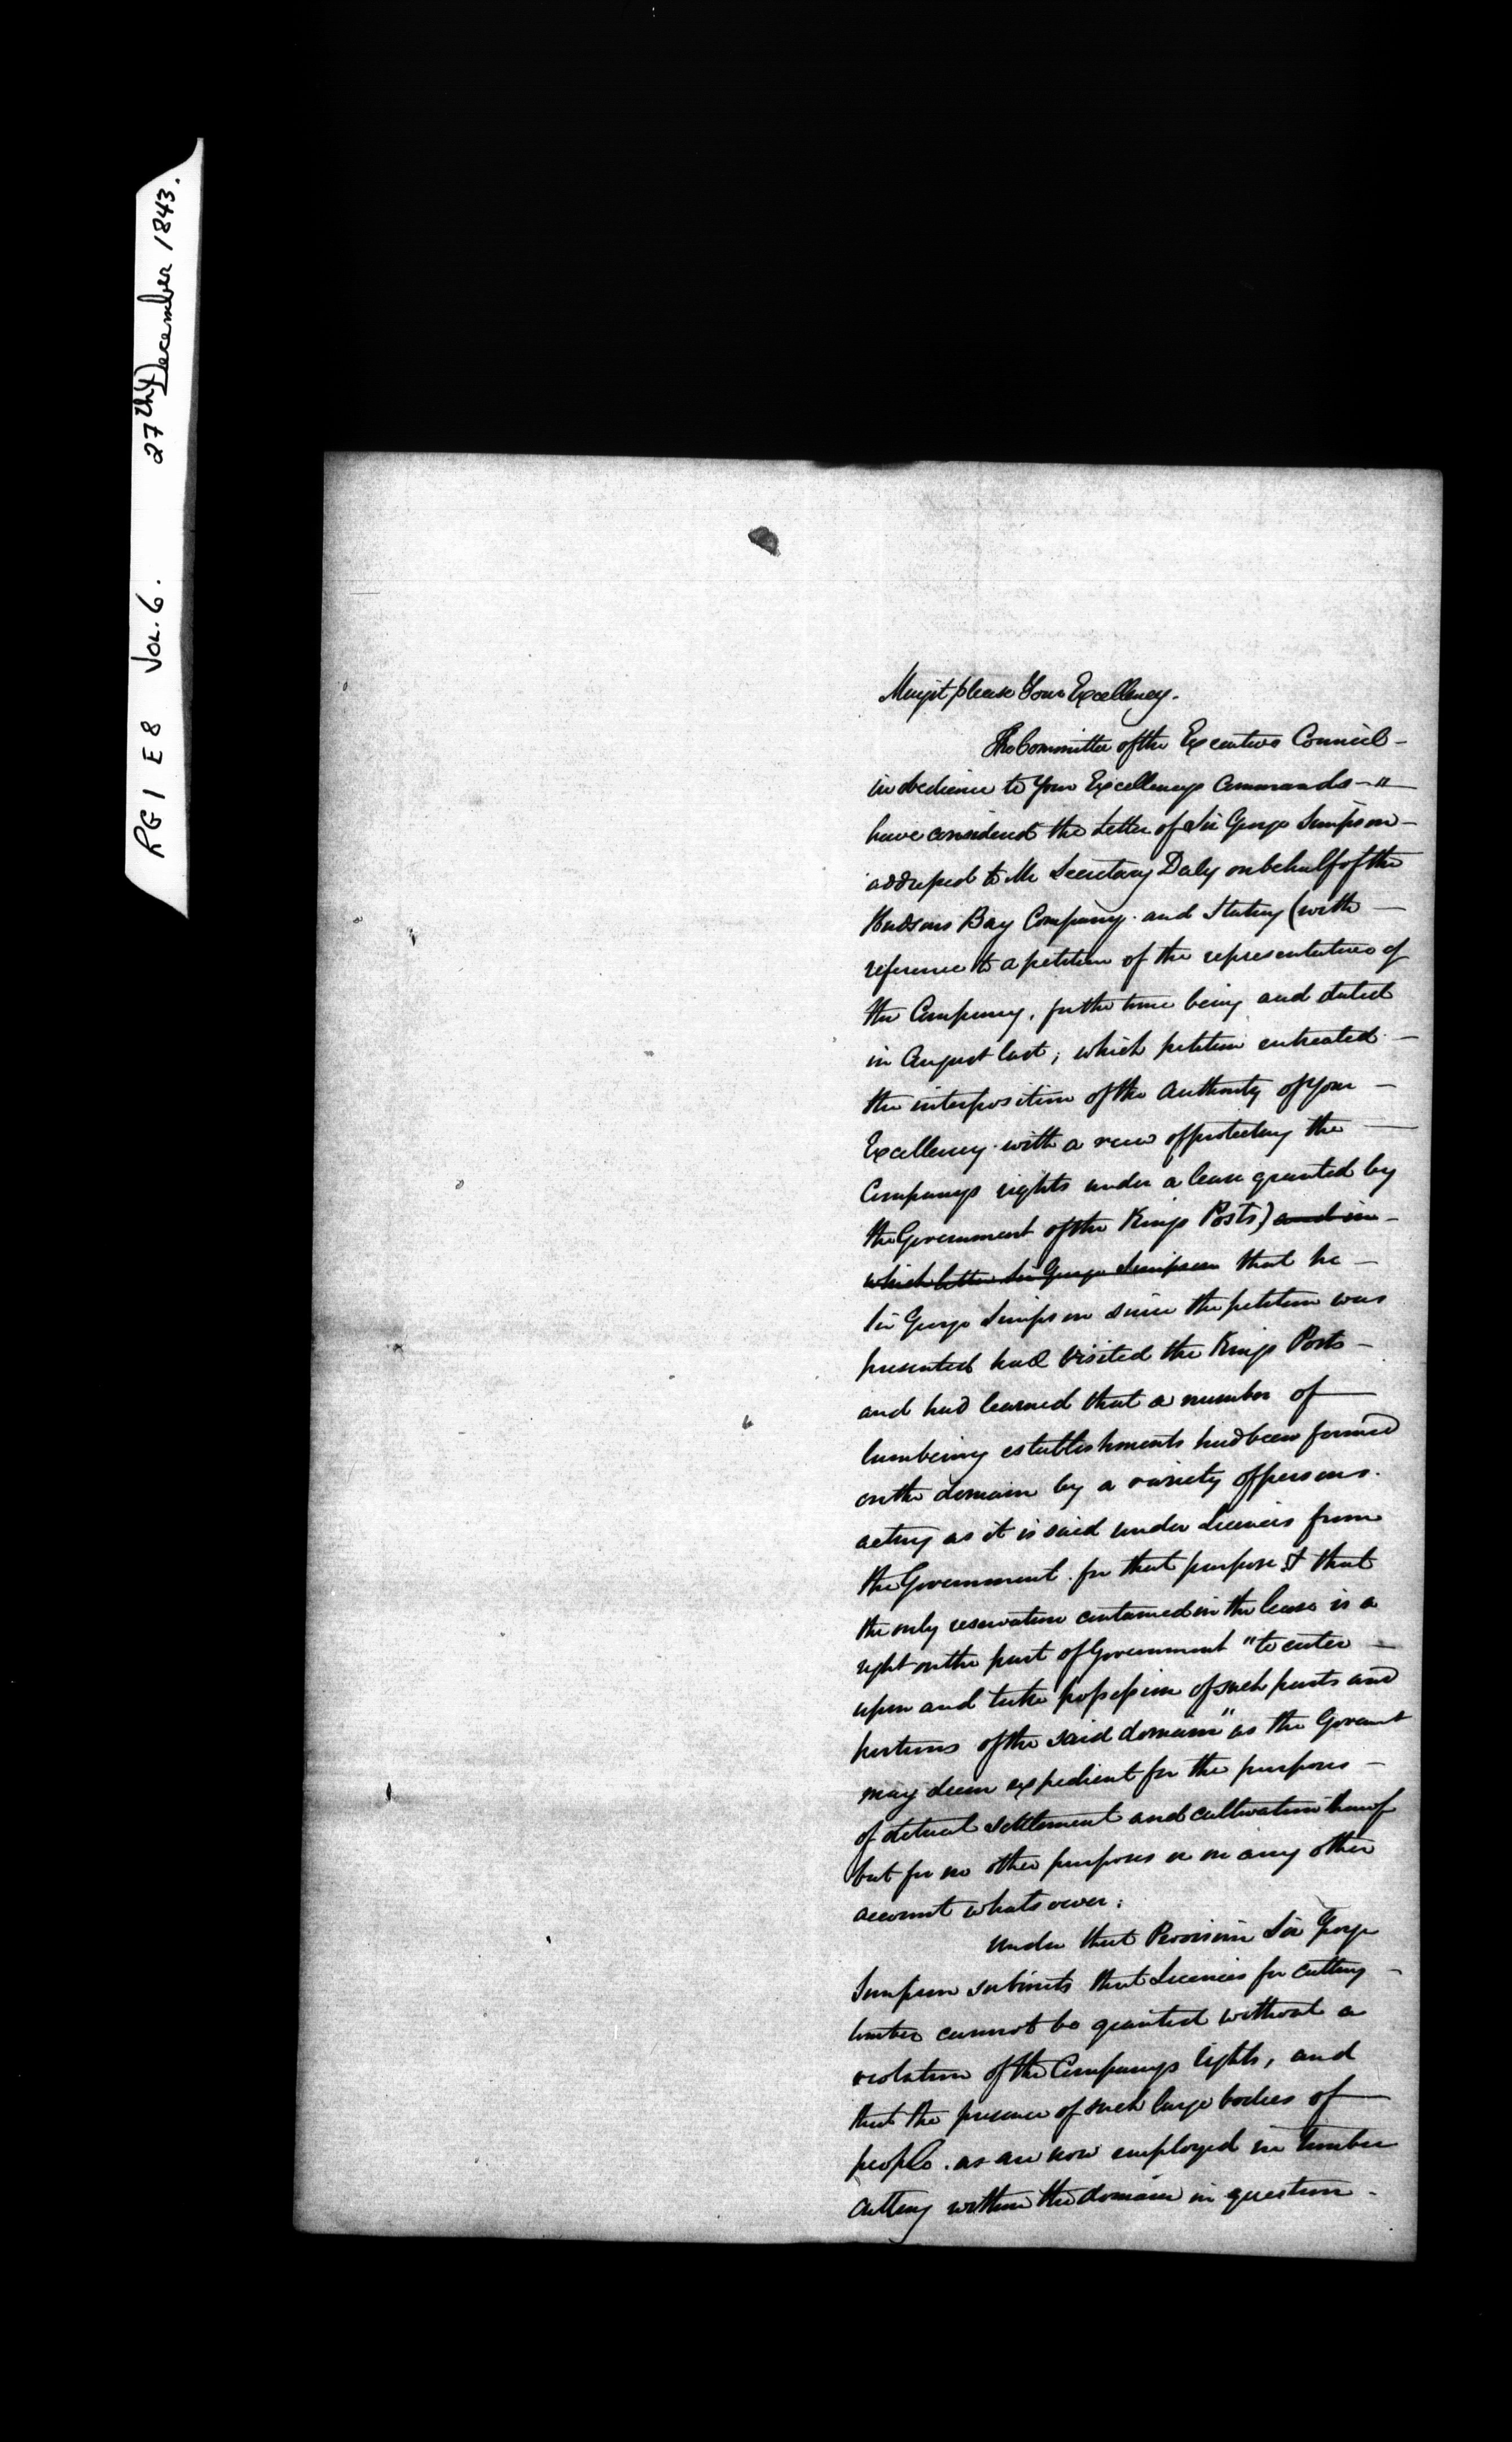 RG 1 E 8 Vol. 6. 27th December 1843.
May it please Your Excellency.
The Committee of the Executive Council -
in obedience to Your Excellencys Commands -
have considered the Letter of Sir George Simpson -
addressed to Mr Secretary Daly on behalf of the
Hudsons Bay Company and stating (with -
reference to a petition of the representatives of
the Company, for the time being and dated
in August last; which petition entreated -
the interposition of the Authority of Your -
Excellency with a view of protecting the -
Companys rights under a lease granted by
the Government of the Kings Posts) and in -
which letter Sir George Simpson that he -
Sir George Simpson since the petition was
presented had visited the Kings Posts -
and had learned that a number of
lumbering establishments had been formed
on the domain by a variety of persons.
acting as it is said under Licences from
the Government for that purpose & that
the only reservation contained in the lease is a
right on the part of Government "to enter -
upon and take possession of such parts and
portions of the said domain" as the Governmt
may deem expedient for the purposes -
of actual settlement and cultivation thereof
but for no other purposes or on any other
account whatsoever;
Under that Provision Sir George
Simpson submits that Licences for cutting -
timber cannot be granted without a
violation of the Companys rights, and
that the presence of such large bodies of
people as are now employed in timber
cutting within the domain in question -